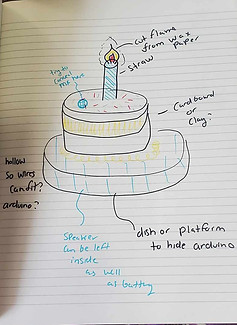 cut flame
from wax
paper
straw
try to
mic here
Cardboard
or
clay?
hollow
so wires
can fit?
arduino?
dish or platform
to hide arduino
Speaker
can be left
inside
as well
as battery